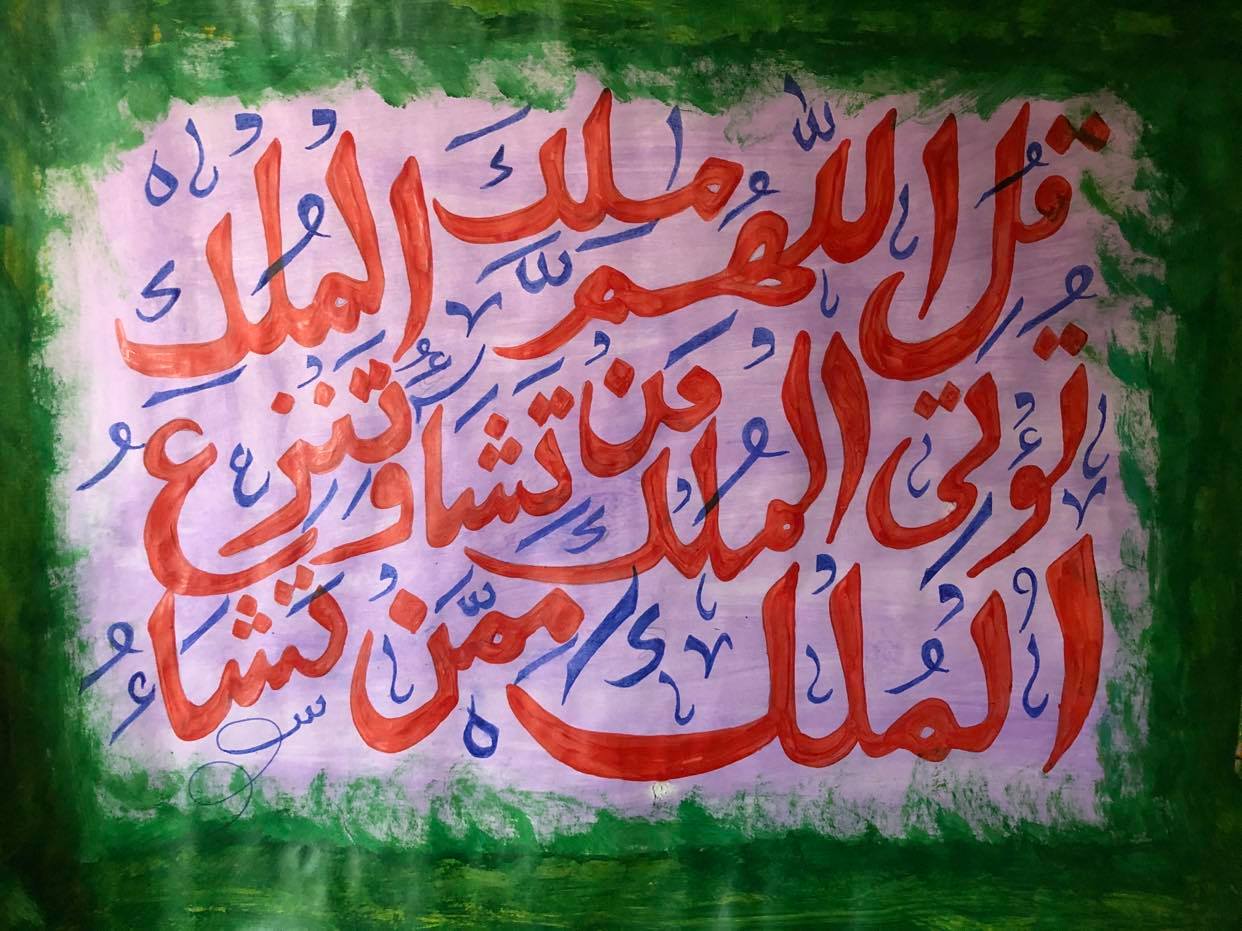 قُلِ اللّٰهُمَّ مٰلِكَ الْمُلْكِ
تُؤْتِى الْمُلْكَ مَنْ تَشَاءُ وَتَنْزِعُ
الْمُلْكَ مِمَّنْ تَشَاءُ